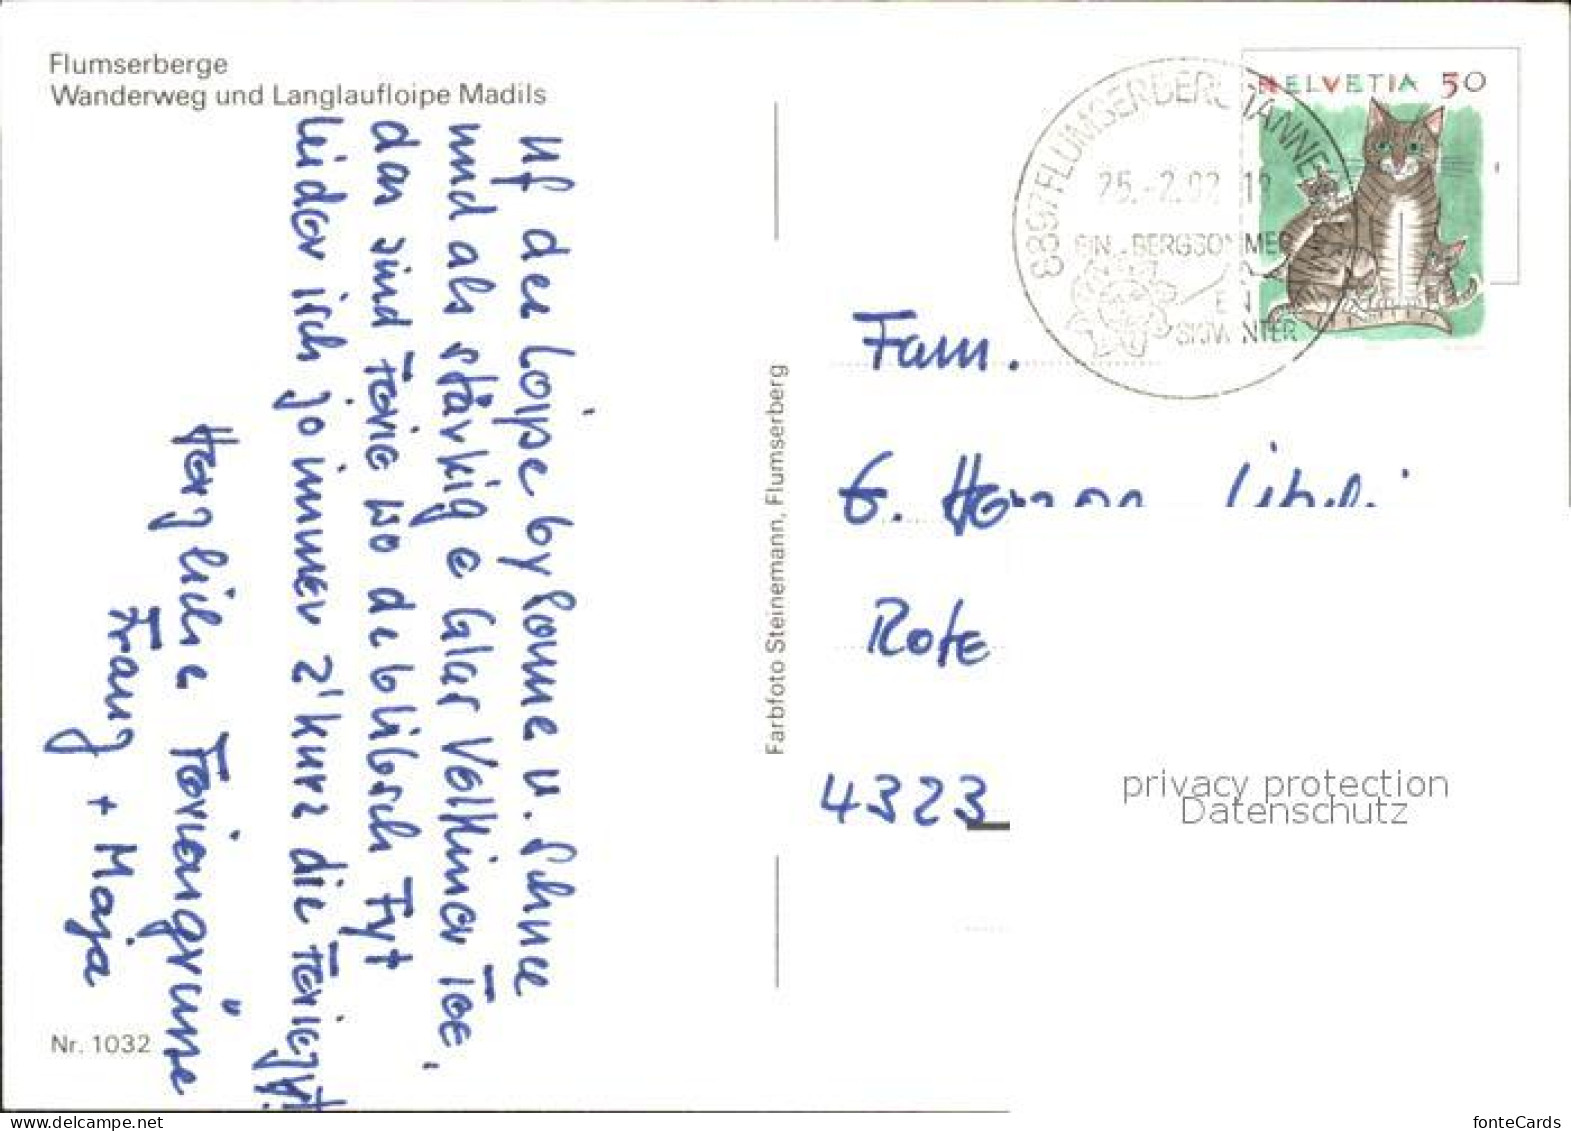 Flumserberge
Wanderweg und Langlaufloipe Madils
uf der Loipe by Sonne u. Schnee
und als stärkig e Glas Veltliner Tee,
das sind Ferie wo de blibsch Fyt
leider isch jo immer z'kurz die Feriezyt!
Herzliche Feriengrüsse
Franz + Maja
Nr. 1032
Farbfoto Steinemann, Flumserberg
HELVETIA 50
8897 FLUMSERBERG TANNE
25.-2.92
BERGSOMMER
Fam.
Rote
4323
privacy protection
Datenschutz
fonteCards